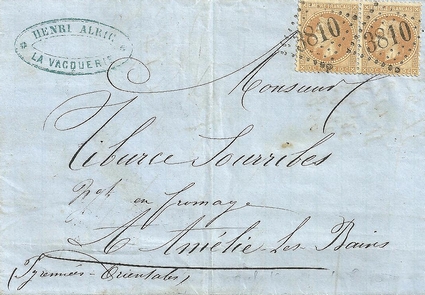 HENRI ALRIC
LA VACQUERIE
3810 3810
Monsieur
Tiburce Sourribes
Nnt en fromage
A Amélie-les-Bains
(Pyrennées-Orientales)